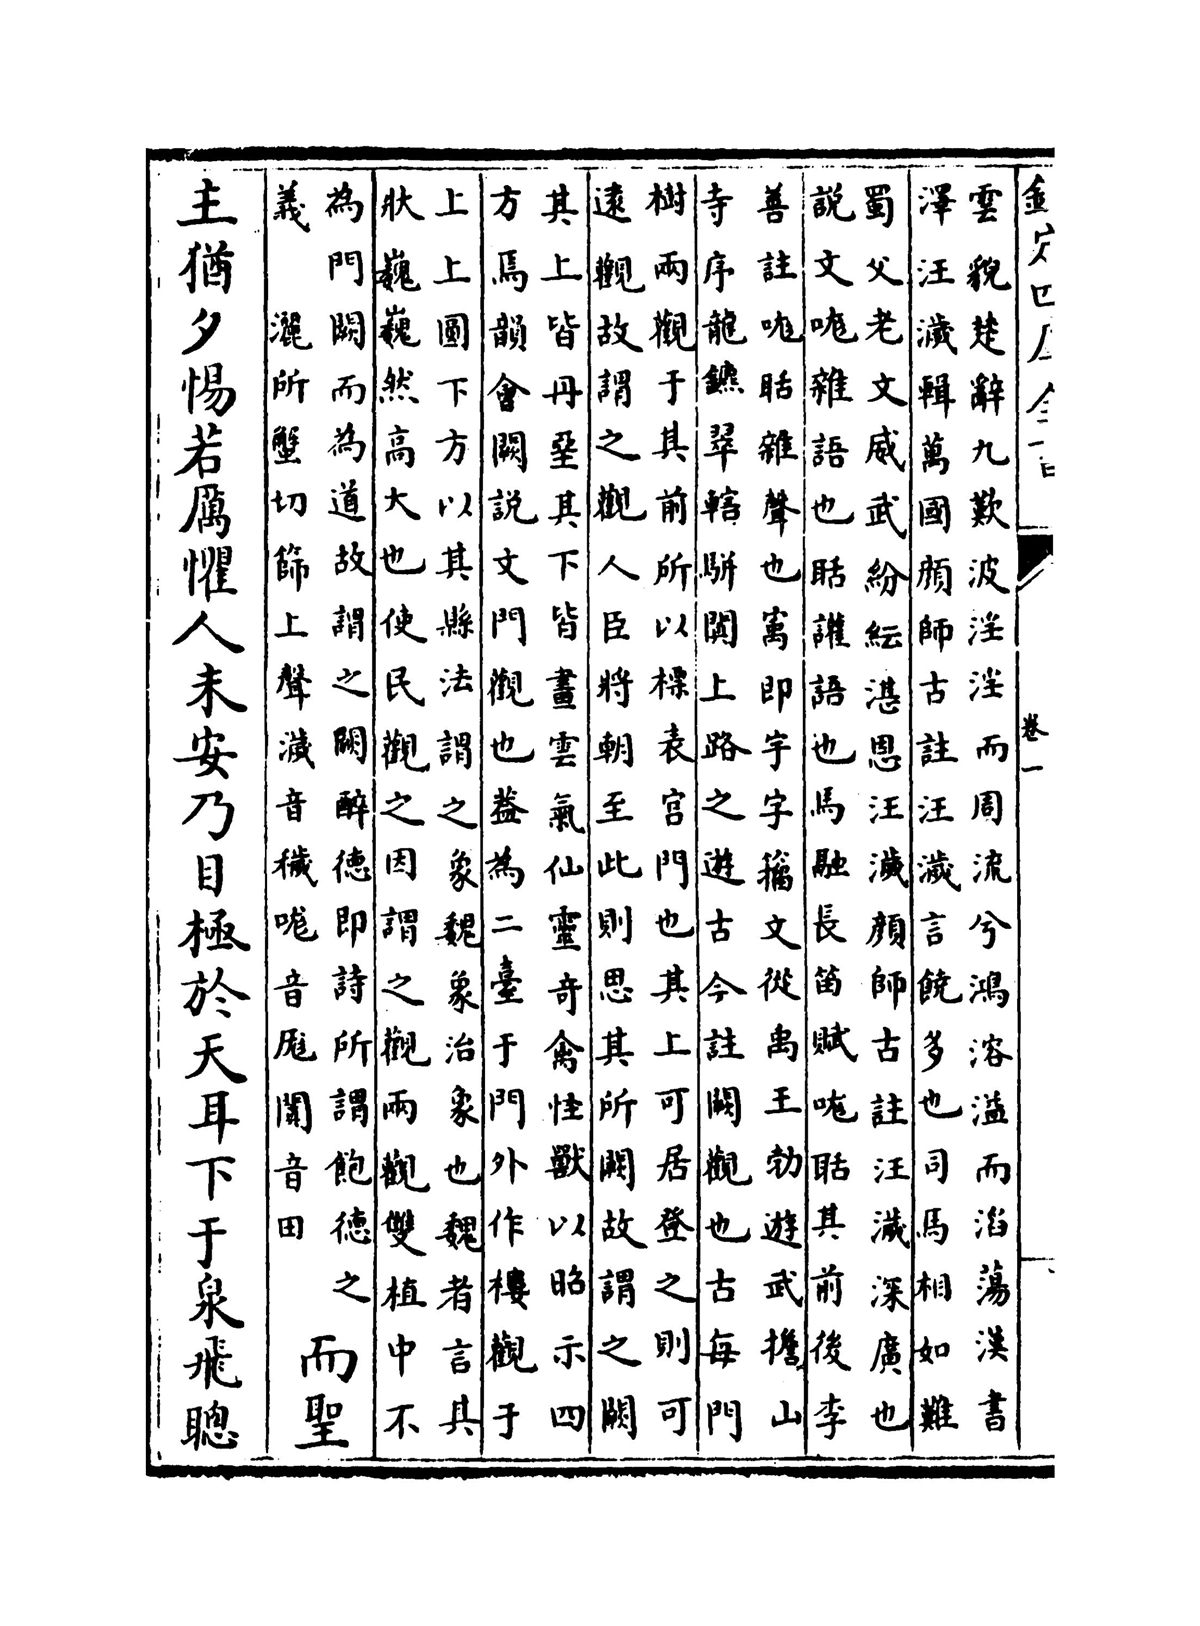 欽定四庫全書
卷一
雲貌楚辭九歎波淫淫而周流兮鴻溶溢而滔蕩漢書
澤汪濊輯萬國顔師古註汪濊言饒多也司馬相如難
蜀父老文威武紛紜湛恩汪濊顔師古註汪濊深廣也
說文哤雜語也聒讙語也馬融長笛賦哤聒其前後李
善註哤聒雜聲也㝢即宇字籀文從禹王勃遊武擔山
寺序龍鑣翠轄駢闐上路之遊古今註闕觀也古每門
樹兩觀于其前所以標表宫門也其上可居登之則可
逺觀故謂之觀人臣將朝至此則思其所闕故謂之闕
其上皆丹堊其下皆畫雲氣仙靈奇禽怪獸以昭示四
方焉韻會闕說文門觀也葢為二臺于門外作樓觀于
上上圎下方以其縣法謂之象魏象治象也魏者言其
狀巍巍然高大也使民觀之因謂之觀兩觀雙植中不
為門闕而為道故謂之闕醉德即詩所謂飽德之
義 灑所蟹切篩上聲濊音穢哤音厖闐音田
而聖
主猶夕惕若厲懼人未安乃目極於天耳下于泉飛聰